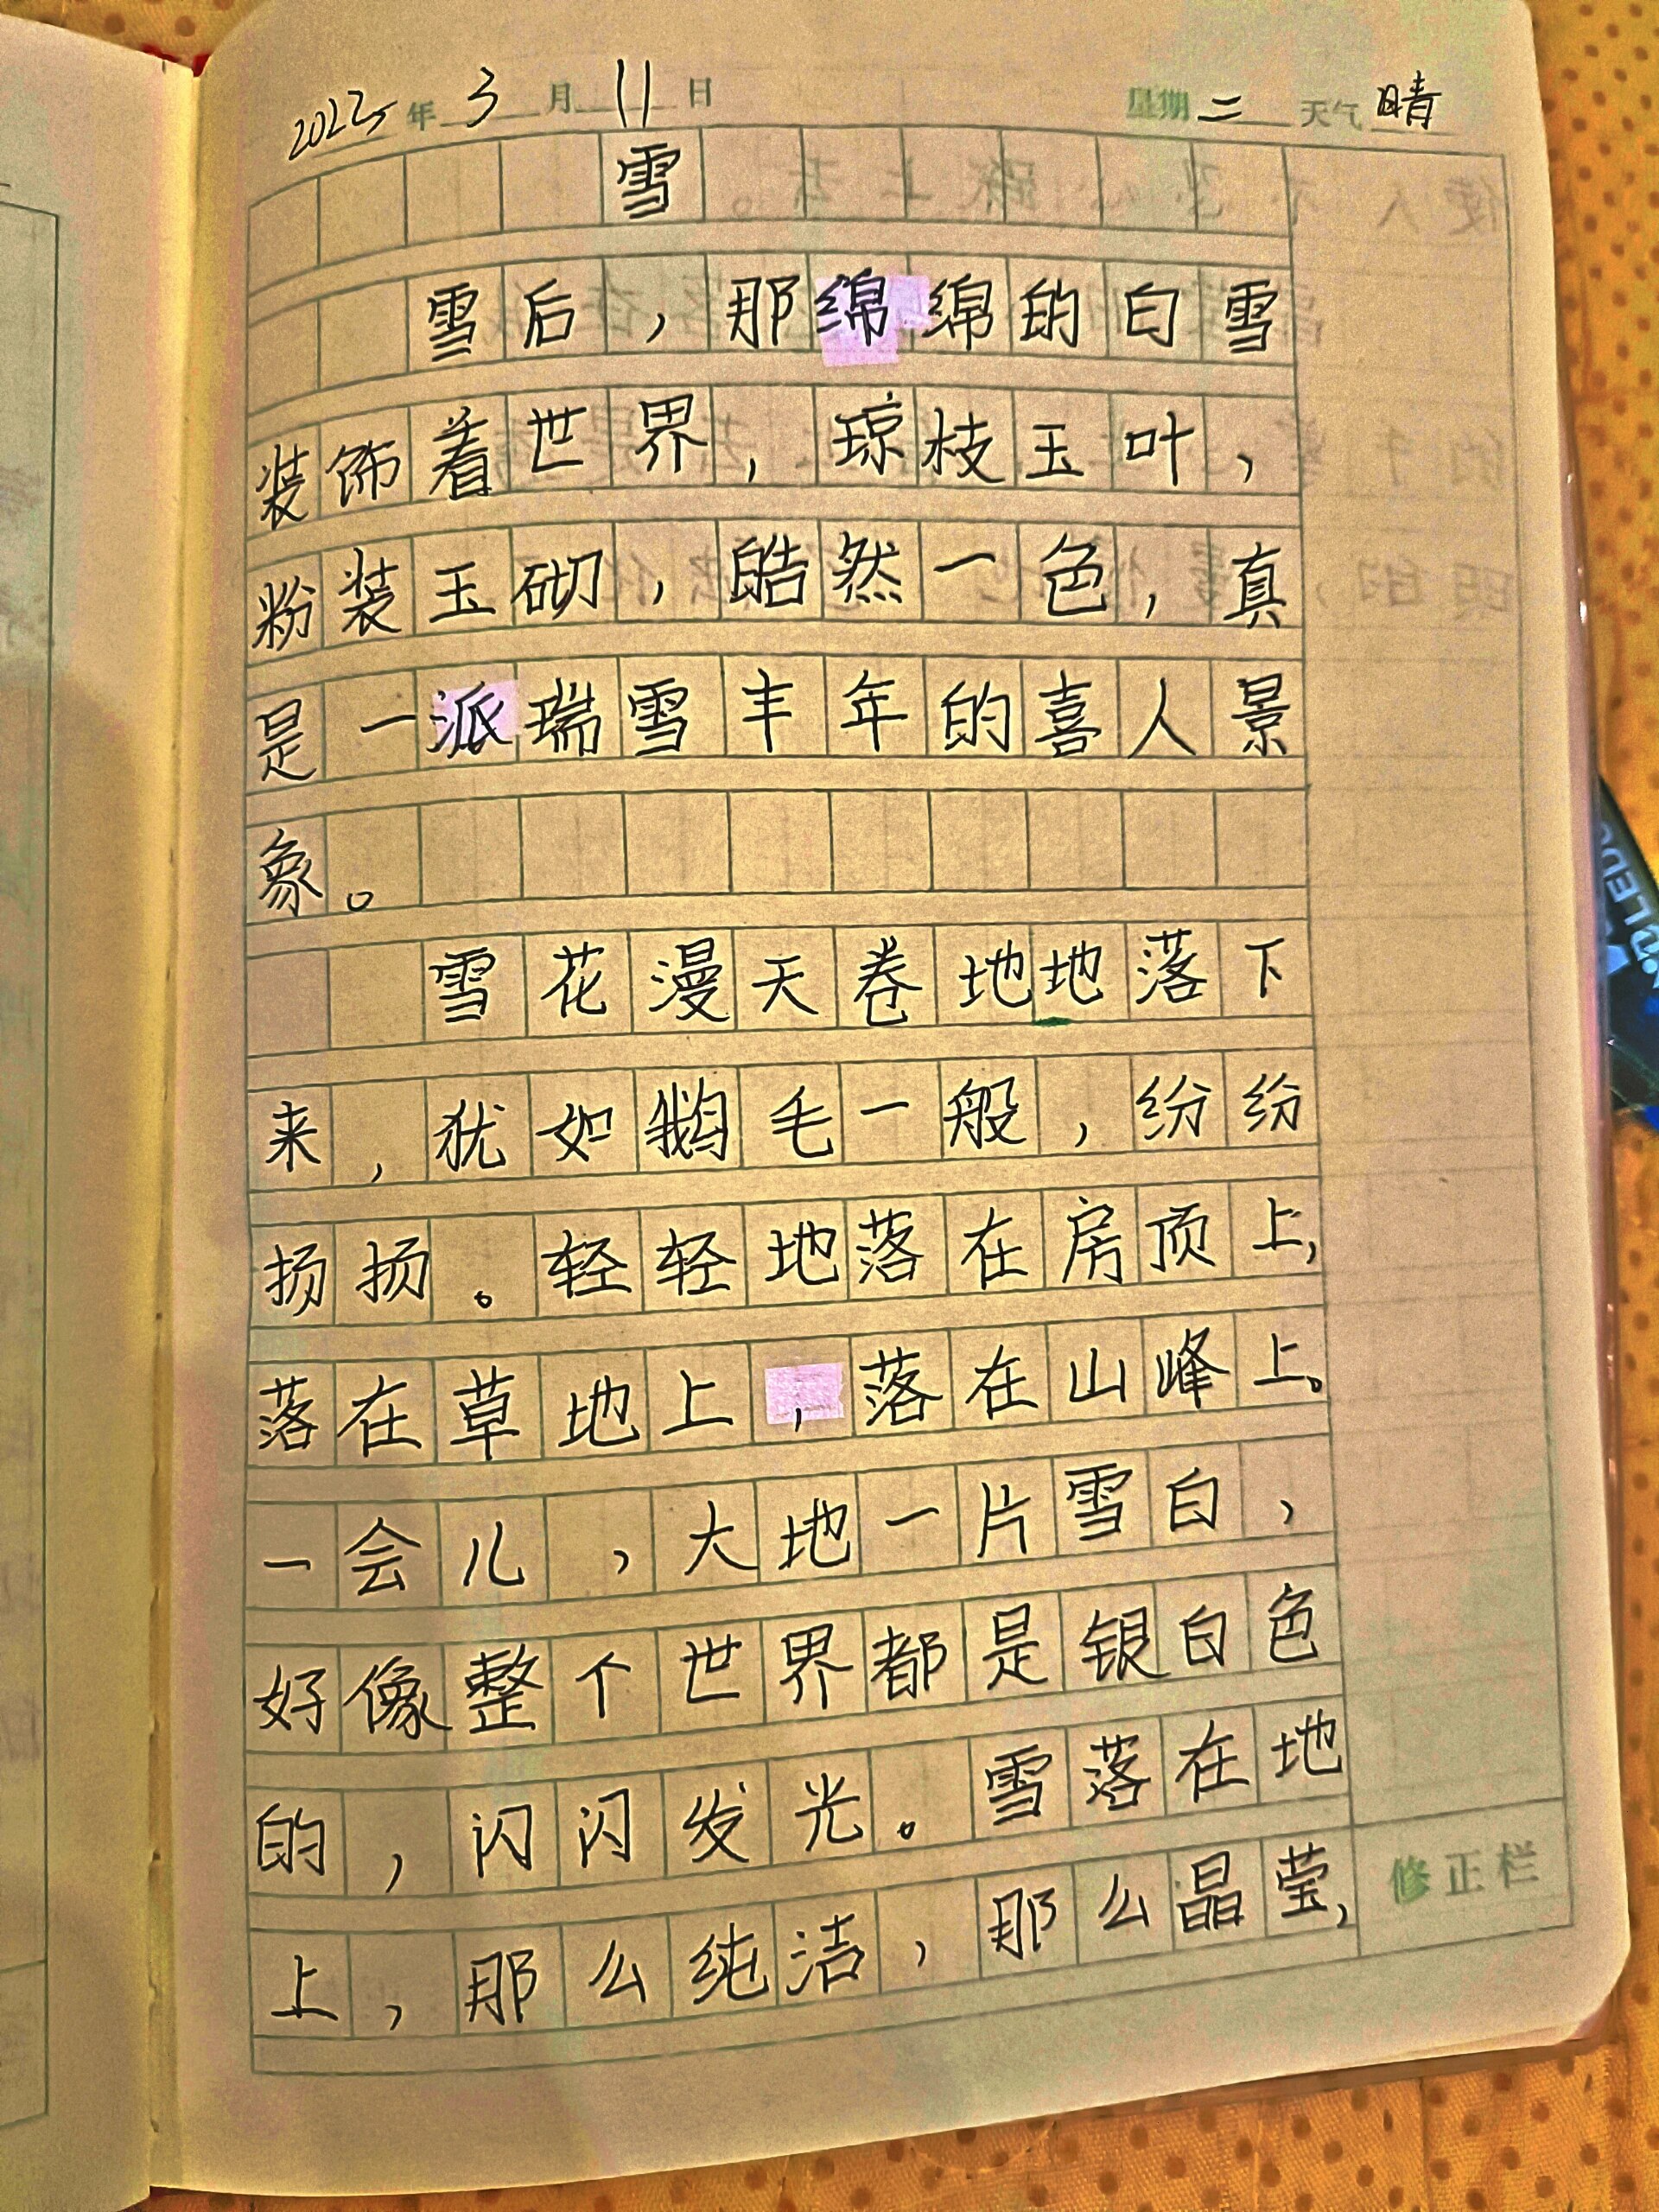 2025年3月11日 星期二 天气晴
雪
雪后，那绵绵的白雪
装饰着世界，琼枝玉叶，
粉装玉砌，皓然一色，真
是一派瑞雪丰年的喜人景
象。
雪花漫天卷地地落下
来，犹如鹅毛一般，纷纷
扬扬。轻轻地落在房顶上，
落在草地上，落在山峰上。
一会儿，大地一片雪白，
好像整个世界都是银白色
的，闪闪发光。雪落在地
上，那么纯洁，那么晶莹，
修正栏